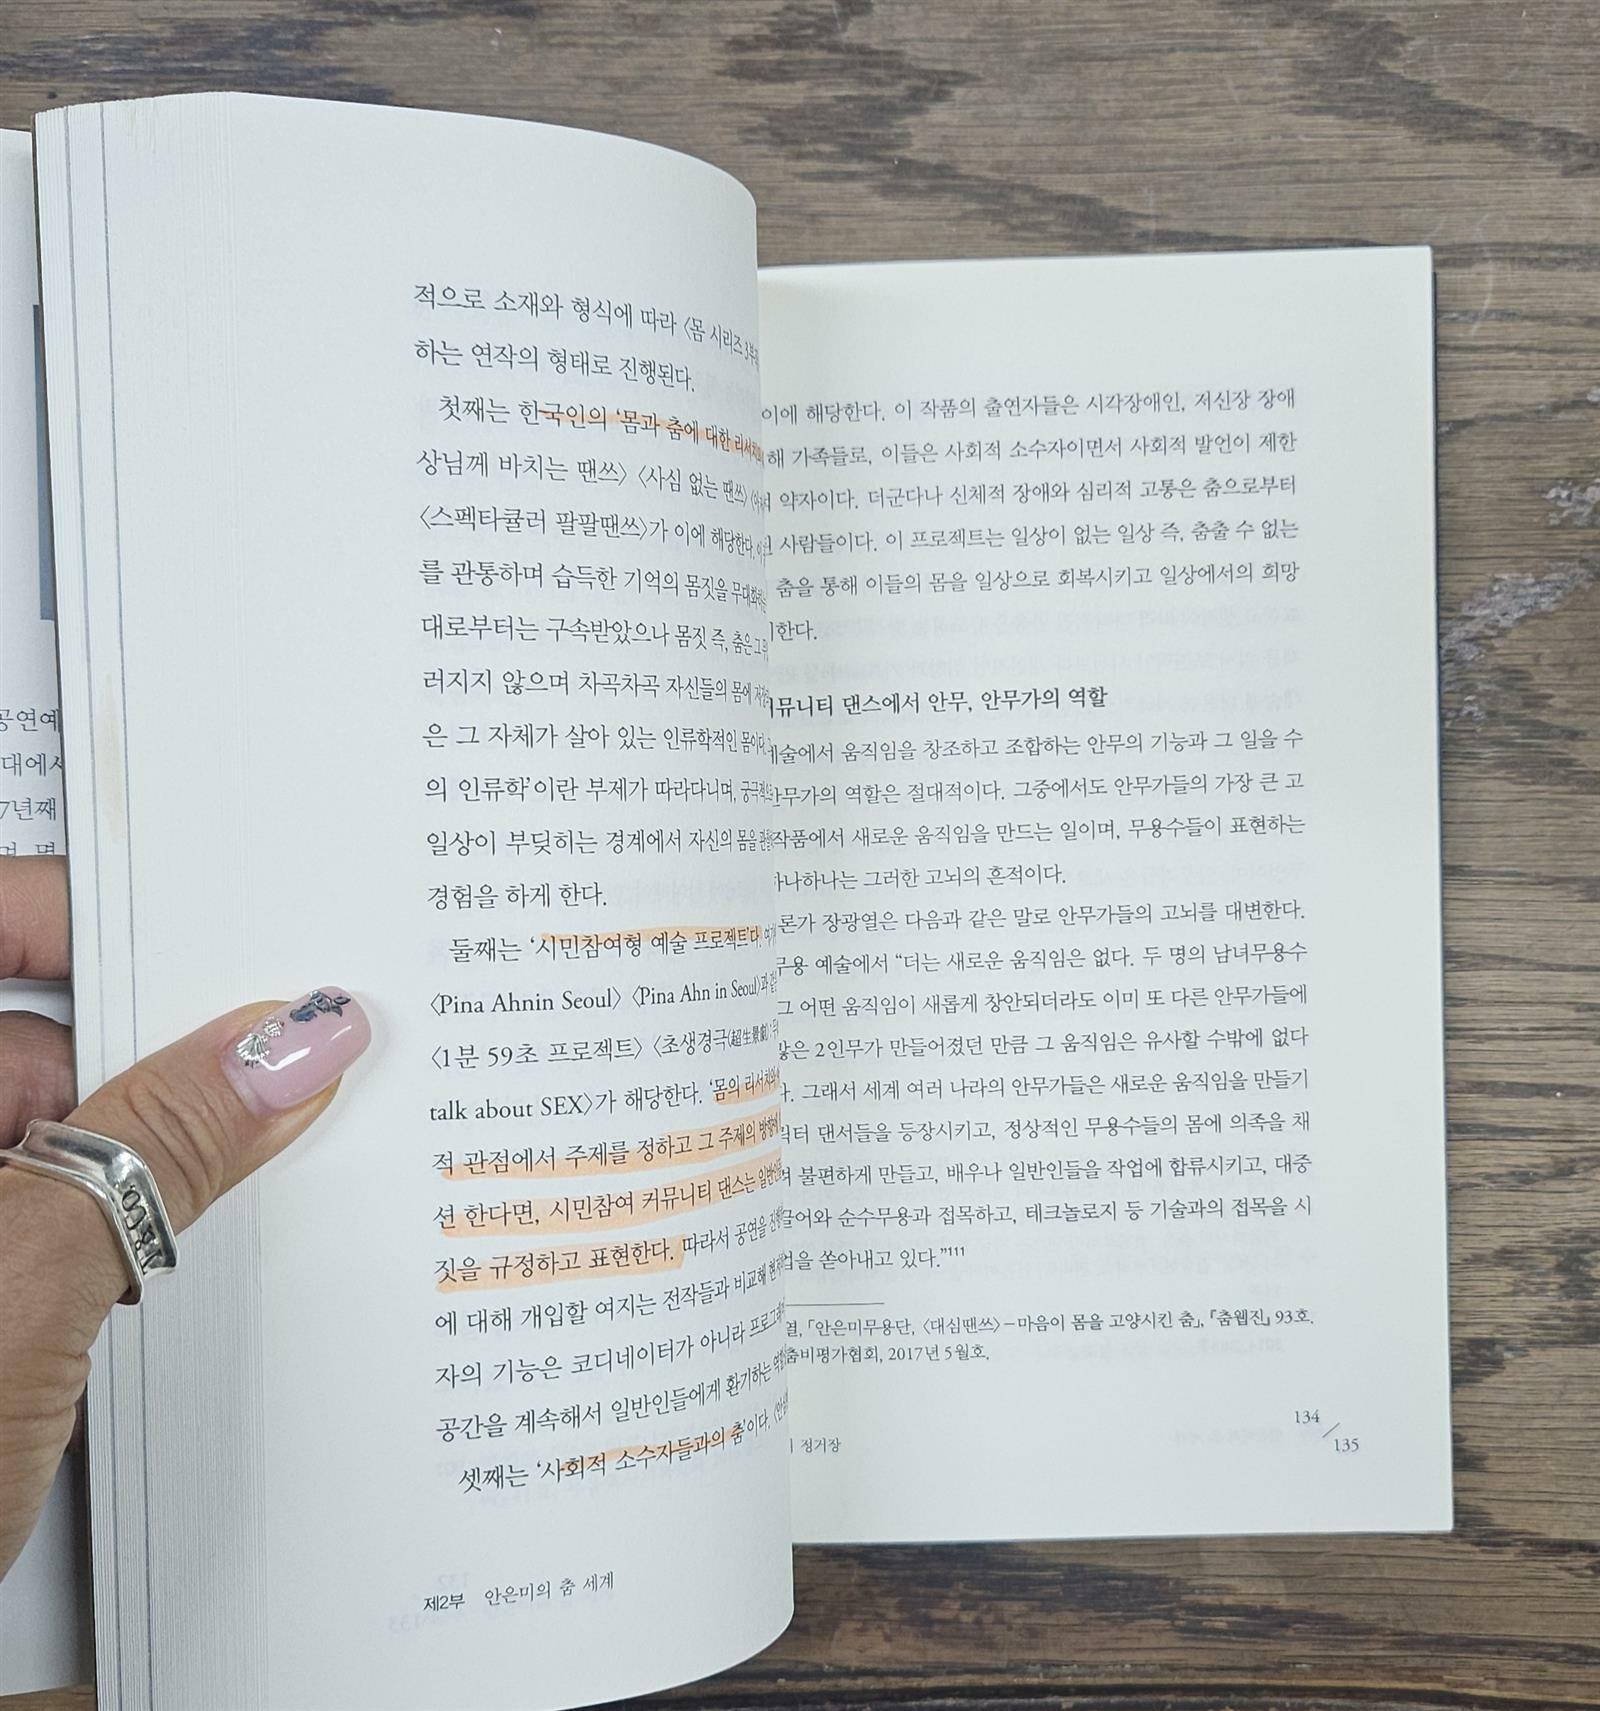 공연예
대에서
7년째
적으로 소재와 형식에 따라 〈몸 시리즈 3부작
하는 연작의 형태로 진행된다.
첫째는 한국인의 ‘몸과 춤에 대한 리서치
상님께 바치는 땐쓰〉 〈사심 없는 땐쓰〉
〈스펙타큘러 팔팔땐쓰〉가 이에 해당한다.
를 관통하며 습득한 기억의 몸짓을
대로부터는 구속받았으나 몸짓 즉, 춤은 그
러지지 않으며 차곡차곡 자신들의 몸에
은 그 자체가 살아 있는 인류학적인 몸이다.
의 인류학’이란 부제가 따라다니며, 궁극적으로
일상이 부딪히는 경계에서 자신의 몸을
경험을 하게 한다.
둘째는 ‘시민참여형 예술 프로젝트’다.
〈Pina Ahnin Seoul〉 〈Pina Ahn in Seoul〉과 같
〈1분 59초 프로젝트〉 〈초생경극(超生景劇)〉
talk about SEX〉가 해당한다. ‘몸의 리서치
적 관점에서 주제를 정하고 그 주제의 방향
선 한다면, 시민참여 커뮤니티 댄스는 일반인
짓을 규정하고 표현한다. 따라서 공연을
에 대해 개입할 여지는 전작들과 비교해
자의 기능은 코디네이터가 아니라
공간을 계속해서 일반인들에게 환기하는
셋째는 ‘사회적 소수자들과의 춤’이다.
제2부 안은미의 춤 세계
이에 해당한다. 이 작품의 출연자들은 시각장애인, 저신장 장애
해 가족들로, 이들은 사회적 소수자이면서 사회적 발언이 제한
약자이다. 더군다나 신체적 장애와 심리적 고통은 춤으로부터
사람들이다. 이 프로젝트는 일상이 없는 일상 즉, 춤출 수 없는
춤을 통해 이들의 몸을 일상으로 회복시키고 일상에서의 희망
한다.
뮤니티 댄스에서 안무, 안무가의 역할
예술에서 움직임을 창조하고 조합하는 안무의 기능과 그 일을 수
안무가의 역할은 절대적이다. 그중에서도 안무가들의 가장 큰 고
작품에서 새로운 움직임을 만드는 일이며, 무용수들이 표현하는
하나하나는 그러한 고뇌의 흔적이다.
론가 장광열은 다음과 같은 말로 안무가들의 고뇌를 대변한다.
무용 예술에서 “더는 새로운 움직임은 없다. 두 명의 남녀무용수
그 어떤 움직임이 새롭게 창안되더라도 이미 또 다른 안무가들에
많은 2인무가 만들어졌던 만큼 그 움직임은 유사할 수밖에 없다
. 그래서 세계 여러 나라의 안무가들은 새로운 움직임을 만들기
댄서들을 등장시키고, 정상적인 무용수들의 몸에 의족을 채
불편하게 만들고, 배우나 일반인들을 작업에 합류시키고, 대중
와 순수무용과 접목하고, 테크놀로지 등 기술과의 접목을 시
업을 쏟아내고 있다.”111
열, 「안은미무용단, 〈대심땐쓰〉–마음이 몸을 고양시킨 춤」, 『춤웹진』 93호.
춤비평가협회, 2017년 5월호.
정거장
134
135